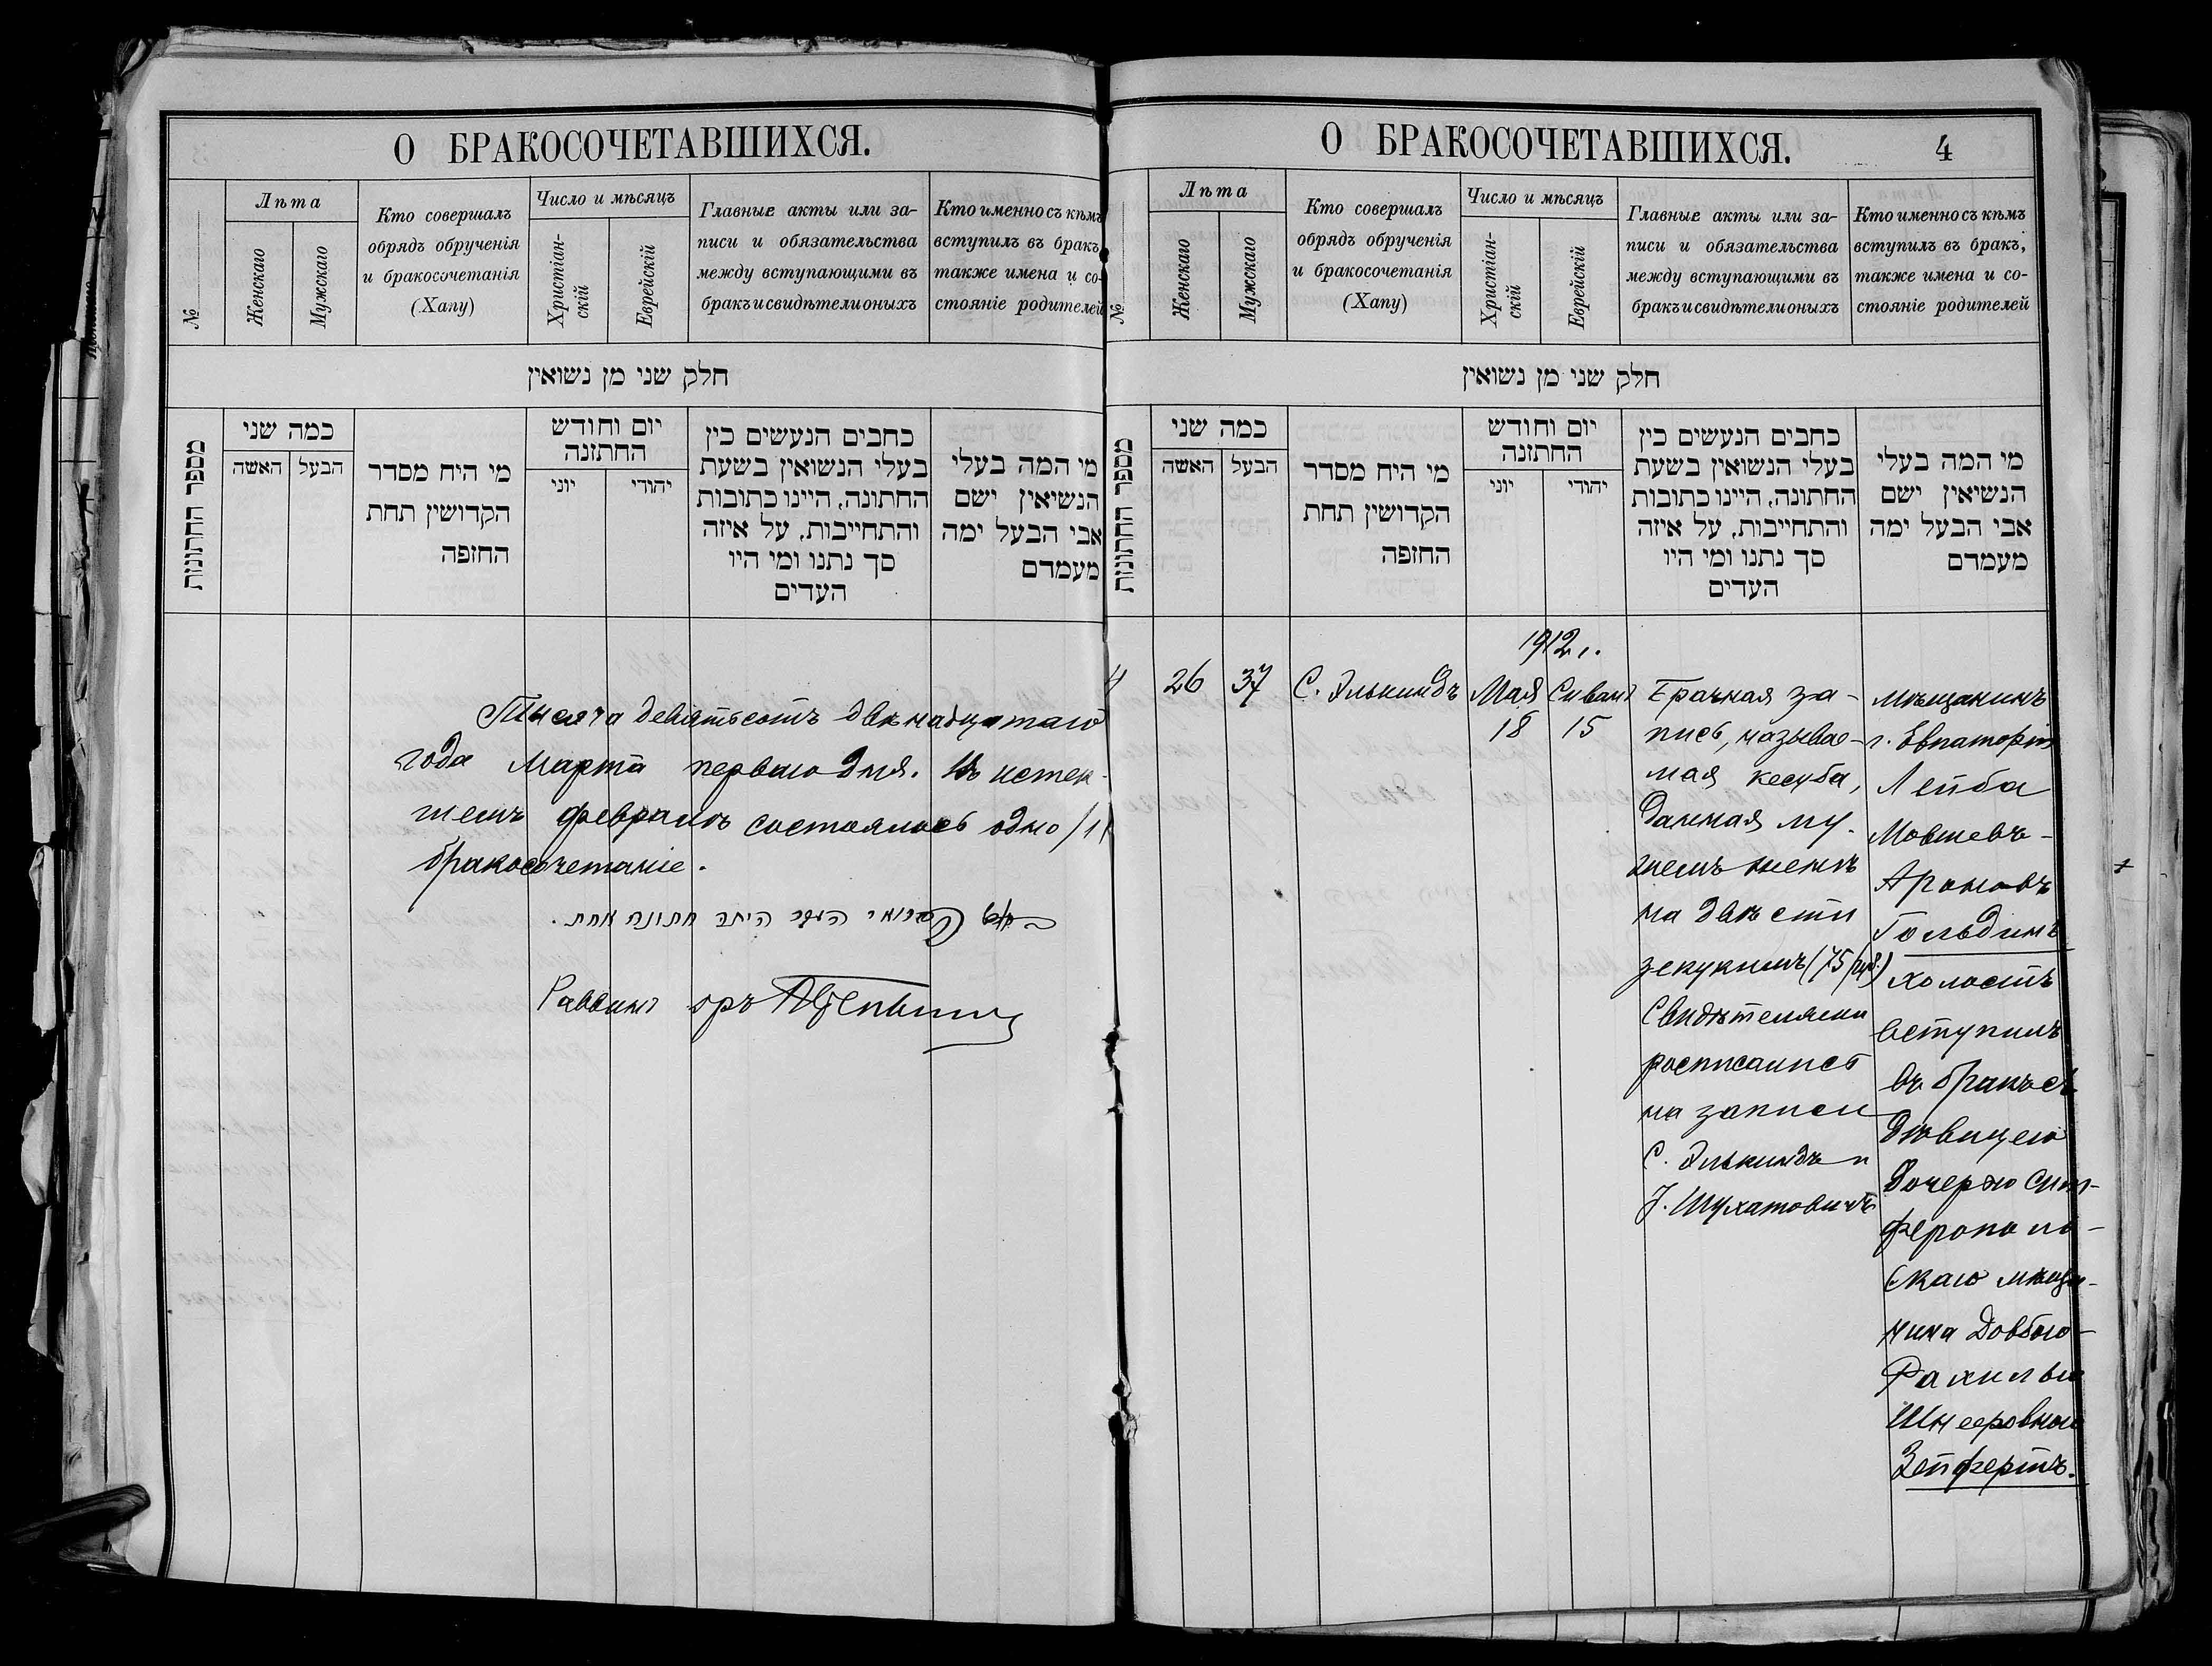 О БРАКОСОЧЕТАВШИХСЯ.
№
Лѣта
Женскаго
Мужскаго
Кто совершалъ
обрядъ обрученія
и бракосочетанія
(Хапу)
Число и мѣсяцъ
Христіан-
скій
Еврейскій
Главные акты или за-
писи и обязательства
между вступающими въ
бракъ и свидѣтели оныхъ
Кто именно съ кѣмъ
вступилъ въ бракъ,
также имена и со-
стояніе родителей
חלק שני מן נשואין
מספר החתונות
כמה שני
האשה
הבעל
מי היח מסדר
הקדושין תחת
החופה
יום וחודש
החתונה
יוני
יהודי
כתבים הנעשים בין
בעלי הנשואין בשעת
החתונה, היינו כתובות
והתחייבות, על איזה
סך נתנו ומי היו
העדים
מי המה בעלי
הנשיאין ישם
אבי הבעל ימה
מעמדם
Тысяча девятьсотъ двѣнадцатаго
года Марта перваго дня. Въ истек-
шемъ февралѣ состоялось одно /1/
бракосочетаніе.
היתה חתונה אחת.
Раввинъ
О БРАКОСОЧЕТАВШИХСЯ.
4
№
Лѣта
Женскаго
Мужскаго
Кто совершалъ
обрядъ обрученія
и бракосочетанія
(Хапу)
Число и мѣсяцъ
Христіан-
скій
Еврейскій
Главные акты или за-
писи и обязательства
между вступающими въ
бракъ и свидѣтели оныхъ
Кто именно съ кѣмъ
вступилъ въ бракъ,
также имена и со-
стояніе родителей
חלק שני מן נשואין
מספר החתונות
כמה שני
האשה
הבעל
מי היח מסדר
הקדושין תחת
החופה
יום וחודש
החתונה
יוני
יהודי
כתבים הנעשים בין
בעלי הנשואין בשעת
החתונה, היינו כתובות
והתחייבות, על איזה
סך נתנו ומי היו
העדים
מי המה בעלי
הנשיאין ישם
אבי הבעל ימה
מעמדם
4
26
37
С. Элькиндъ
1912 г.
Мая
18
Сиванъ
15
Брачная за-
пись, называе-
мая кесуба,
данная му-
жемъ женѣ
на двѣсти
зекукимъ (75 руб.)
Свидѣтелями
росписались
на записи
С. Элькиндъ и
І. Шухатовичъ
мѣщанинъ
г. Евпаторіи
Лейба
Мовшевъ-
Ароновъ
Гольдинъ
холостъ
вступилъ
въ бракъ съ
дѣвицею
дочерью Сим-
ферополь-
скаго мѣща-
нина Доббою-
Рахилью
Шнееровною
Зейфертъ.